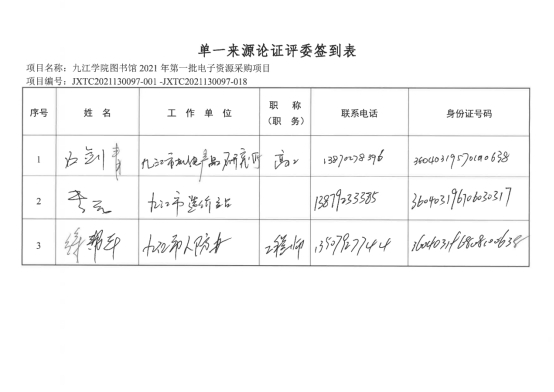 单一来源论证评委签到表
项目名称：九江学院图书馆 2021 年第一批电子资源采购项目
项目编号：JXTC2021130097-001 -JXTC2021130097-018
序号 姓 名 工 作 单 位 职 称（职 务） 联系电话 身份证号码
1 九江市 高工
2 李云 九江市造价 13879233385 360403196706030317
3 九江市人防办 工程师 13507927744